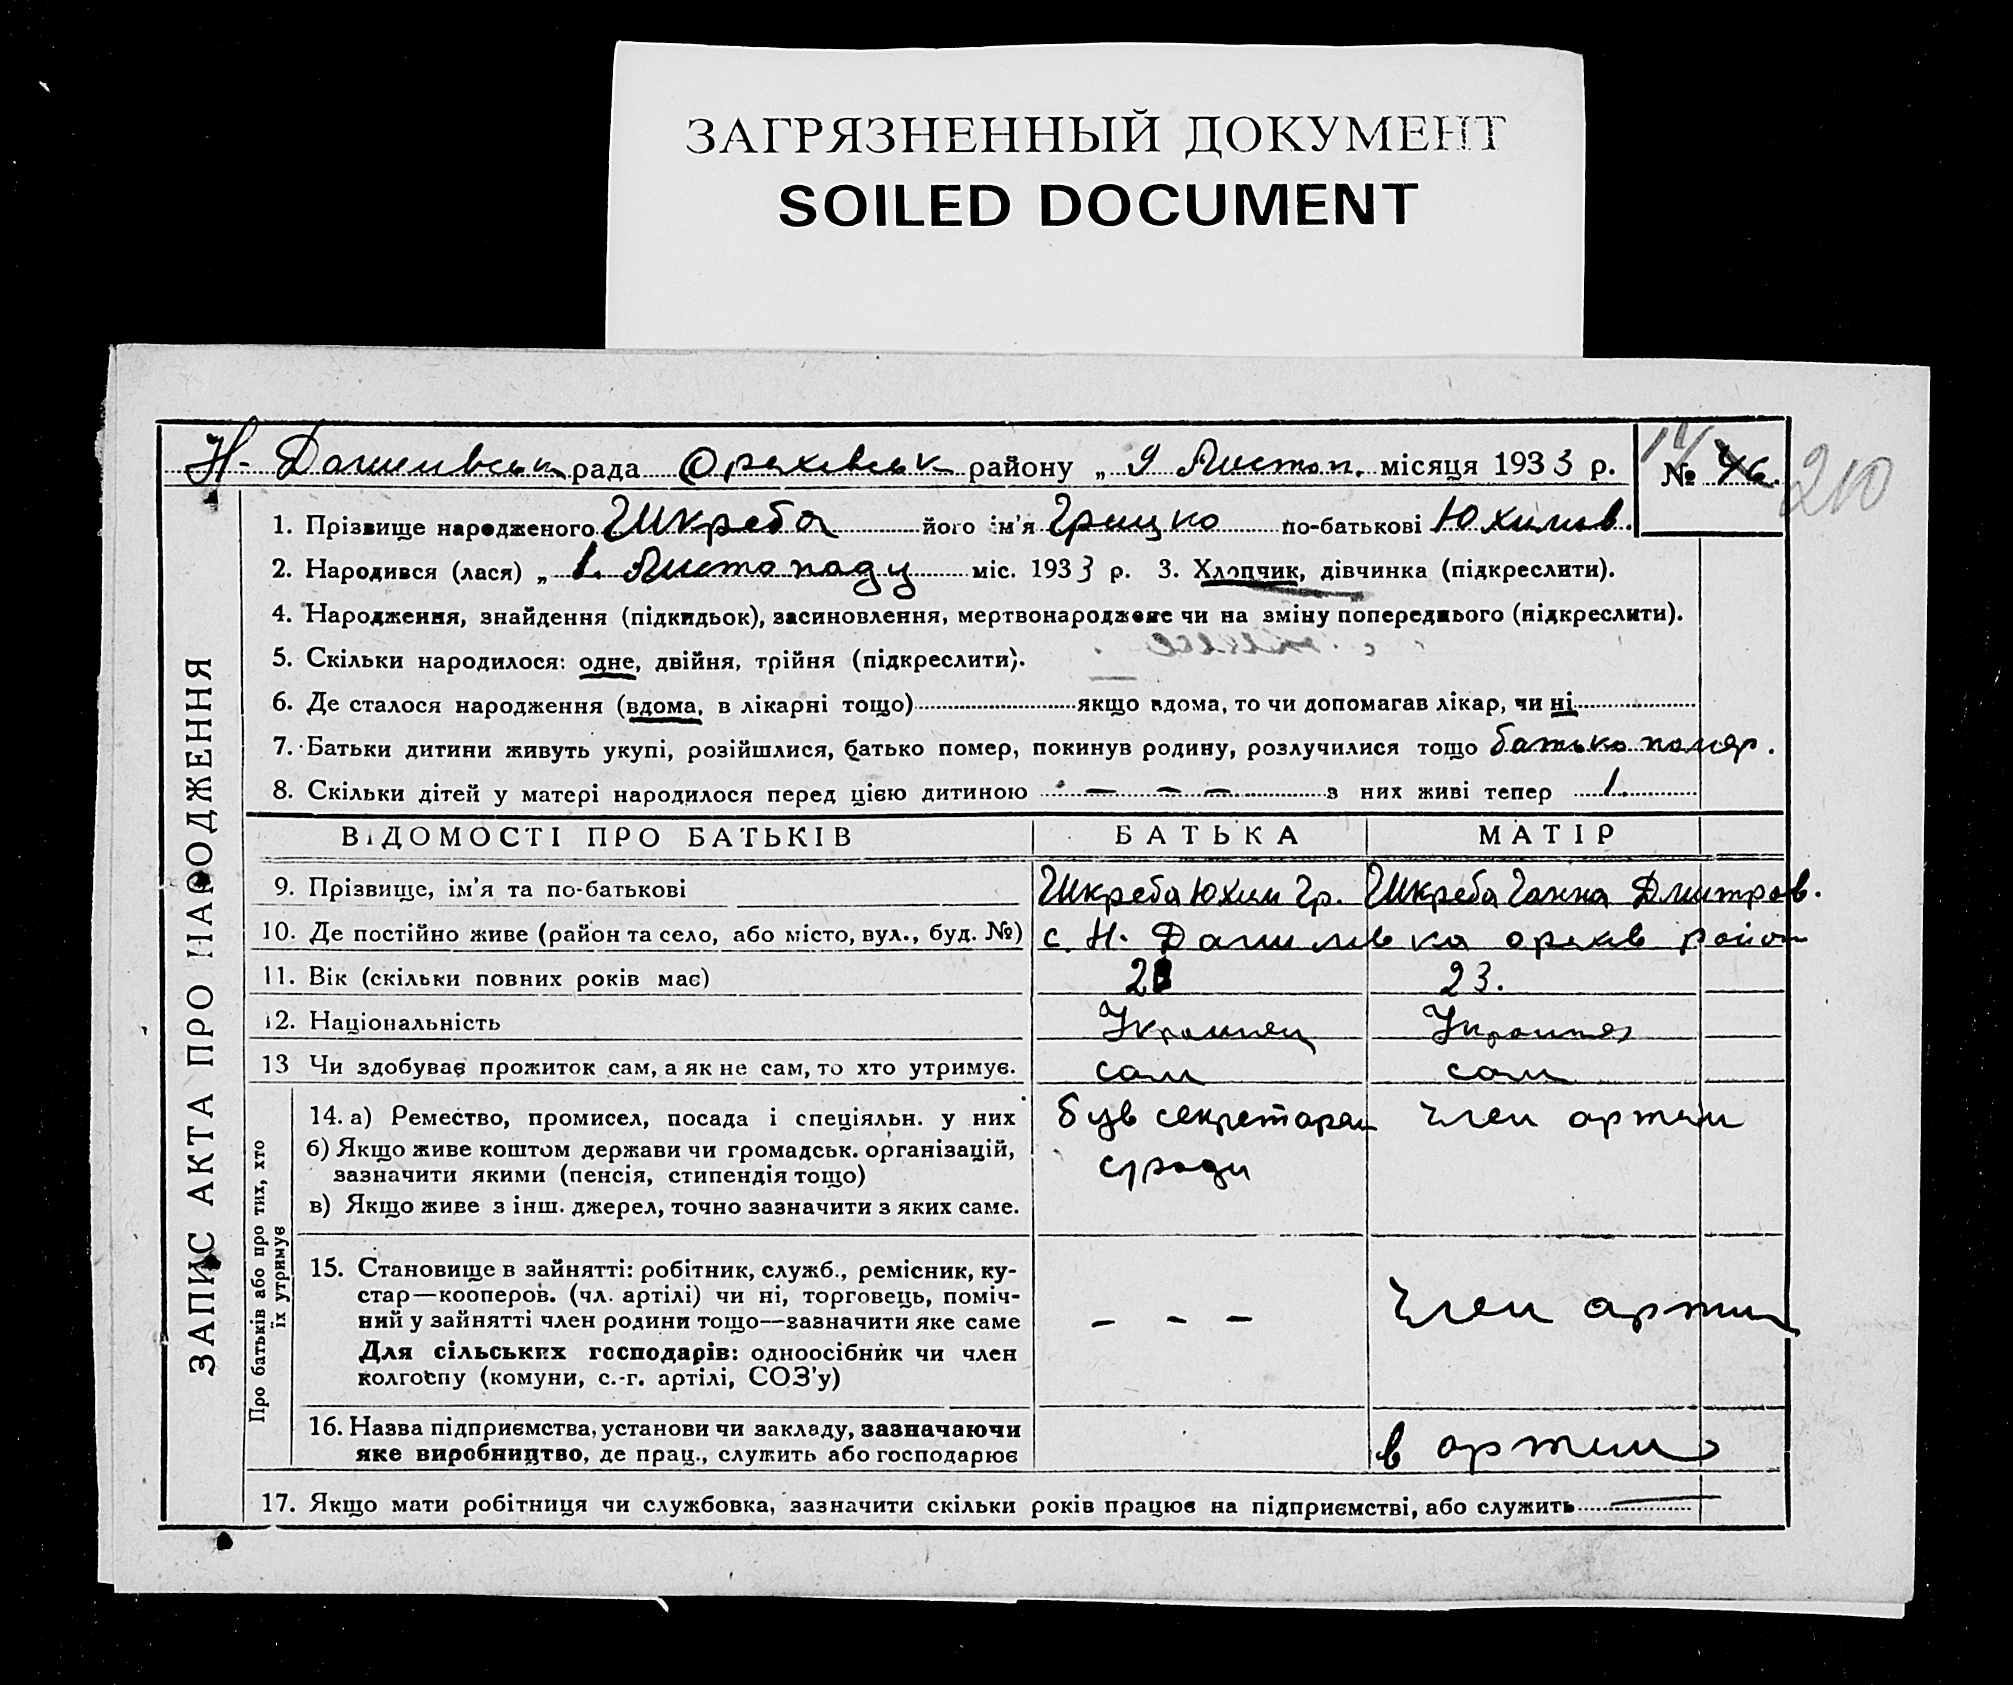 ЗАГРЯЗНЕННЫЙ ДОКУМЕНТ
SOILED DOCUMENT
Н. Данилівськ рада Оріхівськ району „ 9 Листоп. місяця 1933 р. № 210
1. Прізвище народженого Шкреба його ім'я Грицко по-батькові Юхимів.
2. Народився (лася) „ 1. Листопаду міс. 1933 р. 3. Хлопчик, дівчинка (підкреслити).
4. Народження, знайдення (підкидьок), засиновлення, мертвонароджене чи на зміну попереднього (підкреслити).
5. Скільки народилося: одне, двійня, трійня (підкреслити).
6. Де сталося народження (вдома, в лікарні тощо) якщо вдома, то чи допомагав лікар, чи ні
7. Батьки дитини живуть укупі, розійшлися, батько помер, покинув родину, розлучилися тощо батько помер.
8. Скільки дітей у матері народилося перед цією дитиною – – – з них живі тепер 1.
ЗАПИС АКТА ПРО НАРОДЖЕННЯ
ВІДОМОСТІ ПРО БАТЬКІВ БАТЬКА МАТІР
9. Прізвище, ім'я та по-батькові Шкреба Юхим Гр. Шкреба Ганна Дмитров.
10. Де постійно живе (район та село, або місто, вул., буд. №) с. Н. Данилівка оріхів район
11. Вік (скільки повних років має) 23.
12. Національність Українец Українка
13 Чи здобуває прожиток сам, а як не сам, то хто утримує. сам сам
Про батьків або про тих, хто
їх утримує
14. а) Ремество, промисел, посада і спеціяльн. у них був секретарем член артили
б) Якщо живе коштом держави чи громадськ. організацій,
зазначити якими (пенсія, стипендія тощо) с/ради
в) Якщо живе з інш. джерел, точно зазначити з яких саме.
15. Становище в зайнятті: робітник, служб., ремісник, ку-
стар—кооперов. (чл. артілі) чи ні, торговець, поміч- член артили
ний у зайнятті член родини тощо—зазначити яке саме – – –
Для сільських господарів: одноосібник чи член
колгоспу (комуни, с.-г. артілі, СОЗ'у)
16. Назва підприємства, установи чи закладу, зазначаючи
яке виробництво, де прац., служить або господарює в артили
17. Якщо мати робітниця чи службовка, зазначити скільки років працює на підприємстві, або служить —